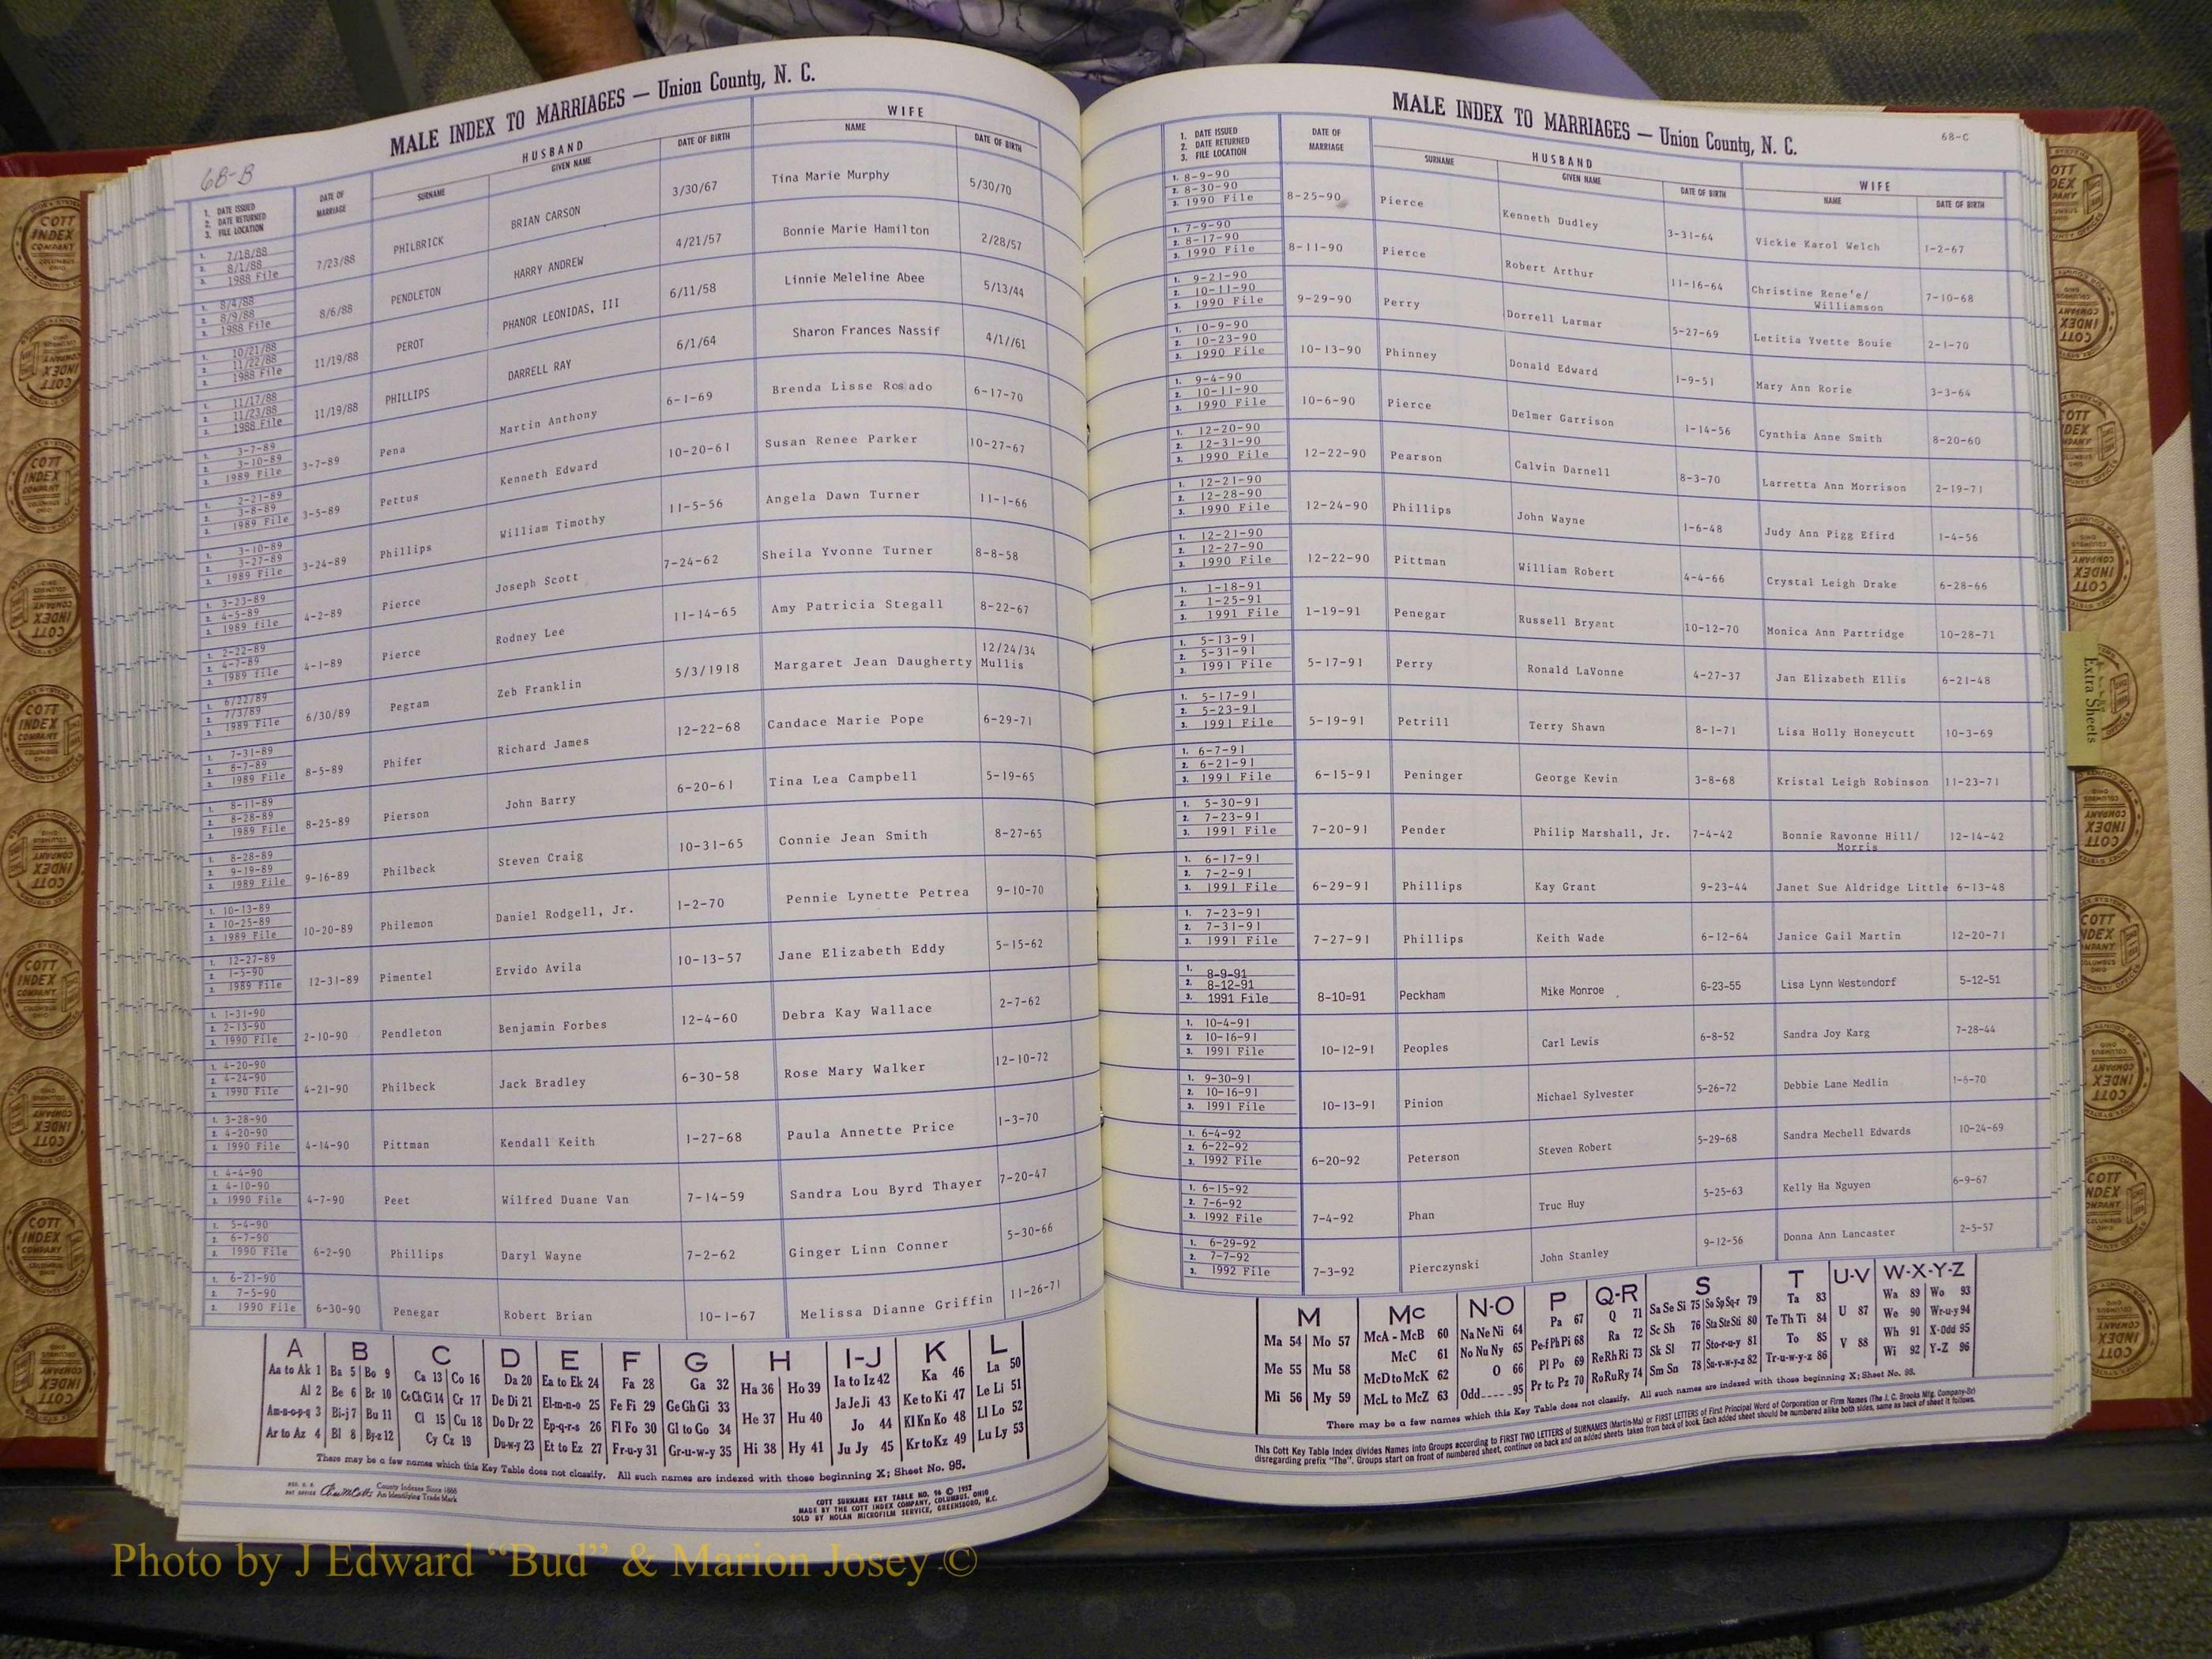 MALE INDEX TO MARRIAGES — Union County, N. C.
68-B
HUSBAND
WIFE
1. DATE ISSUED
2. DATE RETURNED
3. FILE LOCATION
DATE OF MARRIAGE
SURNAME
GIVEN NAME
DATE OF BIRTH
NAME
DATE OF BIRTH
1. 7/18/88
2. 8/1/88
3. 1988 File
7/23/88 PHILBRICK BRIAN CARSON 3/30/67 Tina Marie Murphy 5/30/70
1. 8/4/88
2. 8/9/88
3. 1988 File
8/6/88 PENDLETON HARRY ANDREW 4/21/57 Bonnie Marie Hamilton 2/28/57
1. 10/21/88
2. 11/22/88
3. 1988 File
11/19/88 PEROT PHANOR LEONIDAS, III 6/11/58 Linnie Meleline Abee 5/13/44
1. 11/17/88
2. 11/23/88
3. 1988 File
11/19/88 PHILLIPS DARRELL RAY 6/1/64 Sharon Frances Nassif 4/1//61
1. 3-7-89
2. 3-10-89
3. 1989 File
3-7-89 Pena Martin Anthony 6-1-69 Brenda Lisse Rosado 6-17-70
1. 2-21-89
2. 3-8-89
3. 1989 File
3-5-89 Pettus Kenneth Edward 10-20-61 Susan Renee Parker 10-27-67
1. 3-10-89
2. 3-27-89
3. 1989 File
3-24-89 Phillips William Timothy 11-5-56 Angela Dawn Turner 11-1-66
1. 3-23-89
2. 4-5-89
3. 1989 file
4-2-89 Pierce Joseph Scott 7-24-62 Sheila Yvonne Turner 8-8-58
1. 2-22-89
2. 4-7-89
3. 1989 file
4-1-89 Pierce Rodney Lee 11-14-65 Amy Patricia Stegall 8-22-67
1. 6/22/89
2. 7/3/89
3. 1989 File
6/30/89 Pegram Zeb Franklin 5/3/1918 Margaret Jean Daugherty Mullis 12/24/34
1. 7-31-89
2. 8-7-89
3. 1989 File
8-5-89 Phifer Richard James 12-22-68 Candace Marie Pope 6-29-71
1. 8-11-89
2. 8-28-89
3. 1989 File
8-25-89 Pierson John Barry 6-20-61 Tina Lea Campbell 5-19-65
1. 8-28-89
2. 9-19-89
3. 1989 File
9-16-89 Philbeck Steven Craig 10-31-65 Connie Jean Smith 8-27-65
1. 10-13-89
2. 10-25-89
3. 1989 File
10-20-89 Philemon Daniel Rodgell, Jr. 1-2-70 Pennie Lynette Petrea 9-10-70
1. 12-27-89
2. 1-5-90
3. 1989 File
12-31-89 Pimentel Ervido Avila 10-13-57 Jane Elizabeth Eddy 5-15-62
1. 1-31-90
2. 2-13-90
3. 1990 File
2-10-90 Pendleton Benjamin Forbes 12-4-60 Debra Kay Wallace 2-7-62
1. 4-20-90
2. 4-24-90
3. 1990 File
4-21-90 Philbeck Jack Bradley 6-30-58 Rose Mary Walker 12-10-72
1. 3-28-90
2. 4-20-90
3. 1990 File
4-14-90 Pittman Kendall Keith 1-27-68 Paula Annette Price 1-3-70
1. 4-4-90
2. 4-10-90
3. 1990 File
4-7-90 Peet Wilfred Duane Van 7-14-59 Sandra Lou Byrd Thayer 7-20-47
1. 5-4-90
2. 6-7-90
3. 1990 File
6-2-90 Phillips Daryl Wayne 7-2-62 Ginger Linn Conner 5-30-66
1. 6-21-90
2. 7-5-90
3. 1990 File
6-30-90 Penegar Robert Brian 10-1-67 Melissa Dianne Griffin 11-26-71
A B C D E F G H I-J K L
Aa to Ak 1 Ba 5 Bo 9 Ca 13 Co 16 Da 20 Ea to Ek 24 Fa 28 Ga 32 Ha 36 Ho 39 Ia to Iz 42 Ka 46 La 50
Al 2 Be 6 Br 10 Ce Ch Ci 14 Cr 17 De Di 21 El-m-n-o 25 Fe Fi 29 Ge Gh Gi 33 Ja Je Ji 43 Ke to Ki 47 Le Li 51
Am-n-o-p-q 3 Bi-j 7 Bu 11 Cl 15 Cu 18 Do Dr 22 Ep-q-r-s 26 Fl Fo 30 Gl to Go 34 He 37 Hu 40 Jo 44 Kl Kn Ko 48 Ll Lo 52
Ar to Az 4 Bl 8 By-z 12 Cy Cz 19 Du-w-y 23 Et to Ez 27 Fr-u-y 31 Gr-u-w-y 35 Hi 38 Hy 41 Ju Jy 45 Kr to Kz 49 Lu Ly 53
There may be a few names which this Key Table does not classify. All such names are indexed with those beginning X; Sheet No. 95.
County Indexes Since 1888
An Identifying Trade Mark
COTT SURNAME KEY TABLE NO. 96 © 1952
MADE BY THE COTT INDEX COMPANY, COLUMBUS, OHIO
SOLD BY NOLAN MICROFILM SERVICE, GREENSBORO, N.C.
MALE INDEX TO MARRIAGES — Union County, N. C.
68-C
HUSBAND
WIFE
1. DATE ISSUED
2. DATE RETURNED
3. FILE LOCATION
DATE OF MARRIAGE
SURNAME
GIVEN NAME
DATE OF BIRTH
NAME
DATE OF BIRTH
1. 8-9-90
2. 8-30-90
3. 1990 File
8-25-90 Pierce Kenneth Dudley 3-31-64 Vickie Karol Welch 1-2-67
1. 7-9-90
2. 8-17-90
3. 1990 File
8-11-90 Pierce Robert Arthur 11-16-64 Christine Rene'e/ Williamson 7-10-68
1. 9-21-90
2. 10-11-90
3. 1990 File
9-29-90 Perry Dorrell Larmar 5-27-69 Letitia Yvette Bouie 2-1-70
1. 10-9-90
2. 10-23-90
3. 1990 File
10-13-90 Phinney Donald Edward 1-9-51 Mary Ann Rorie 3-3-64
1. 9-4-90
2. 10-11-90
3. 1990 File
10-6-90 Pierce Delmer Garrison 1-14-56 Cynthia Anne Smith 8-20-60
1. 12-20-90
2. 12-31-90
3. 1990 File
12-22-90 Pearson Calvin Darnell 8-3-70 Larretta Ann Morrison 2-19-71
1. 12-21-90
2. 12-28-90
3. 1990 File
12-24-90 Phillips John Wayne 1-6-48 Judy Ann Pigg Efird 1-4-56
1. 12-21-90
2. 12-27-90
3. 1990 File
12-22-90 Pittman William Robert 4-4-66 Crystal Leigh Drake 6-28-66
1. 1-18-91
2. 1-25-91
3. 1991 File
1-19-91 Penegar Russell Bryant 10-12-70 Monica Ann Partridge 10-28-71
1. 5-13-91
2. 5-31-91
3. 1991 File
5-17-91 Perry Ronald LaVonne 4-27-37 Jan Elizabeth Ellis 6-21-48
1. 5-17-91
2. 5-23-91
3. 1991 File
5-19-91 Petrill Terry Shawn 8-1-71 Lisa Holly Honeycutt 10-3-69
1. 6-7-91
2. 6-21-91
3. 1991 File
6-15-91 Peninger George Kevin 3-8-68 Kristal Leigh Robinson 11-23-71
1. 5-30-91
2. 7-23-91
3. 1991 File
7-20-91 Pender Philip Marshall, Jr. 7-4-42 Bonnie Ravonne Hill/ Morris 12-14-42
1. 6-17-91
2. 7-2-91
3. 1991 File
6-29-91 Phillips Kay Grant 9-23-44 Janet Sue Aldridge Little 6-13-48
1. 7-23-91
2. 7-31-91
3. 1991 File
7-27-91 Phillips Keith Wade 6-12-64 Janice Gail Martin 12-20-71
1. 8-9-91
2. 8-12-91
3. 1991 File
8-10=91 Peckham Mike Monroe 6-23-55 Lisa Lynn Westendorf 5-12-51
1. 10-4-91
2. 10-16-91
3. 1991 File
10-12-91 Peoples Carl Lewis 6-8-52 Sandra Joy Karg 7-28-44
1. 9-30-91
2. 10-16-91
3. 1991 File
10-13-91 Pinion Michael Sylvester 5-26-72 Debbie Lane Medlin 1-6-70
1. 6-4-92
2. 6-22-92
3. 1992 File
6-20-92 Peterson Steven Robert 5-29-68 Sandra Mechell Edwards 10-24-69
1. 6-15-92
2. 7-6-92
3. 1992 File
7-4-92 Phan Truc Huy 5-25-63 Kelly Ha Nguyen 6-9-67
1. 6-29-92
2. 7-7-92
3. 1992 File
7-3-92 Pierczynski John Stanley 9-12-56 Donna Ann Lancaster 2-5-57
M Mc N-O P Q-R S T U-V W-X-Y-Z
Ma 54 Mo 57 McA - McB 60 Na Ne Ni 64 Pa 67 Q 71 Sa Se Si 75 So Sp Sq-r 79 Ta 83 U 87 Wa 89 Wo 93
McC 61 No Nu Ny 65 Pe-f Ph Pi 68 Ra 72 Sc Sh 76 Sta Ste Sti 80 Te Th Ti 84 We 90 Wr-u-y 94
Me 55 Mu 58 McD to McK 62 O 66 Pl Po 69 Re Rh Ri 73 Sk Sl 77 Sto-r-u-y 81 To 85 V 88 Wh 91 X-Odd 95
Mi 56 My 59 McL to McZ 63 Odd 95 Pr to Pz 70 Ro Ru Ry 74 Sm Sn 78 Su-v-w-y-z 82 Tr-u-w-y-z 86 Wi 92 Y-Z 96
There may be a few names which this Key Table does not classify. All such names are indexed with those beginning X; Sheet No. 95.
This Cott Key Table Index divides Names into Groups according to FIRST TWO LETTERS of SURNAMES (Martin-Ma) or FIRST LETTERS of First Principal Word of Corporation or Firm Names (The J. C. Brooks Mfg. Company-Br)
disregarding prefix "The". Groups start on front of numbered sheet, continue on back and on added sheets taken from back of book. Each added sheet should be numbered alike both sides, same as back of sheet it follows.
Extra Sheets
COTT INDEX COMPANY
Photo by J Edward "Bud" & Marion Josey ©